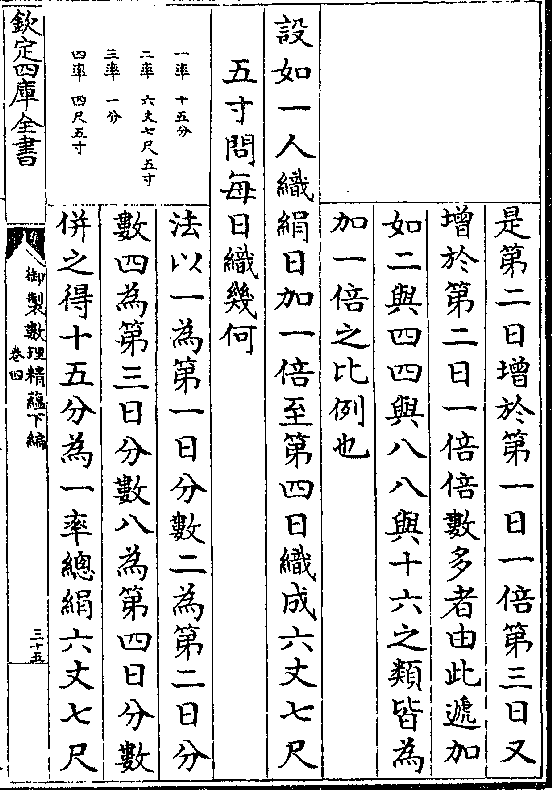 是第二日增於第一日一倍第三日又
增於第二日一倍倍數多者由此遞加
如二與四四與八八與十六之類皆為
加一倍之比例也
設如一人織絹日加一倍至第四日織成六丈七尺
五寸問每日織幾何
一率 十五分
二率 六丈七尺五寸
三率 一分
四率 四尺五寸
法以一為第一日分數二為第二日分
數四為第三日分數八為第四日分數
併之得十五分為一率總絹六丈七尺
欽定四庫全書
御製數理精蘊下編
卷四
三十五